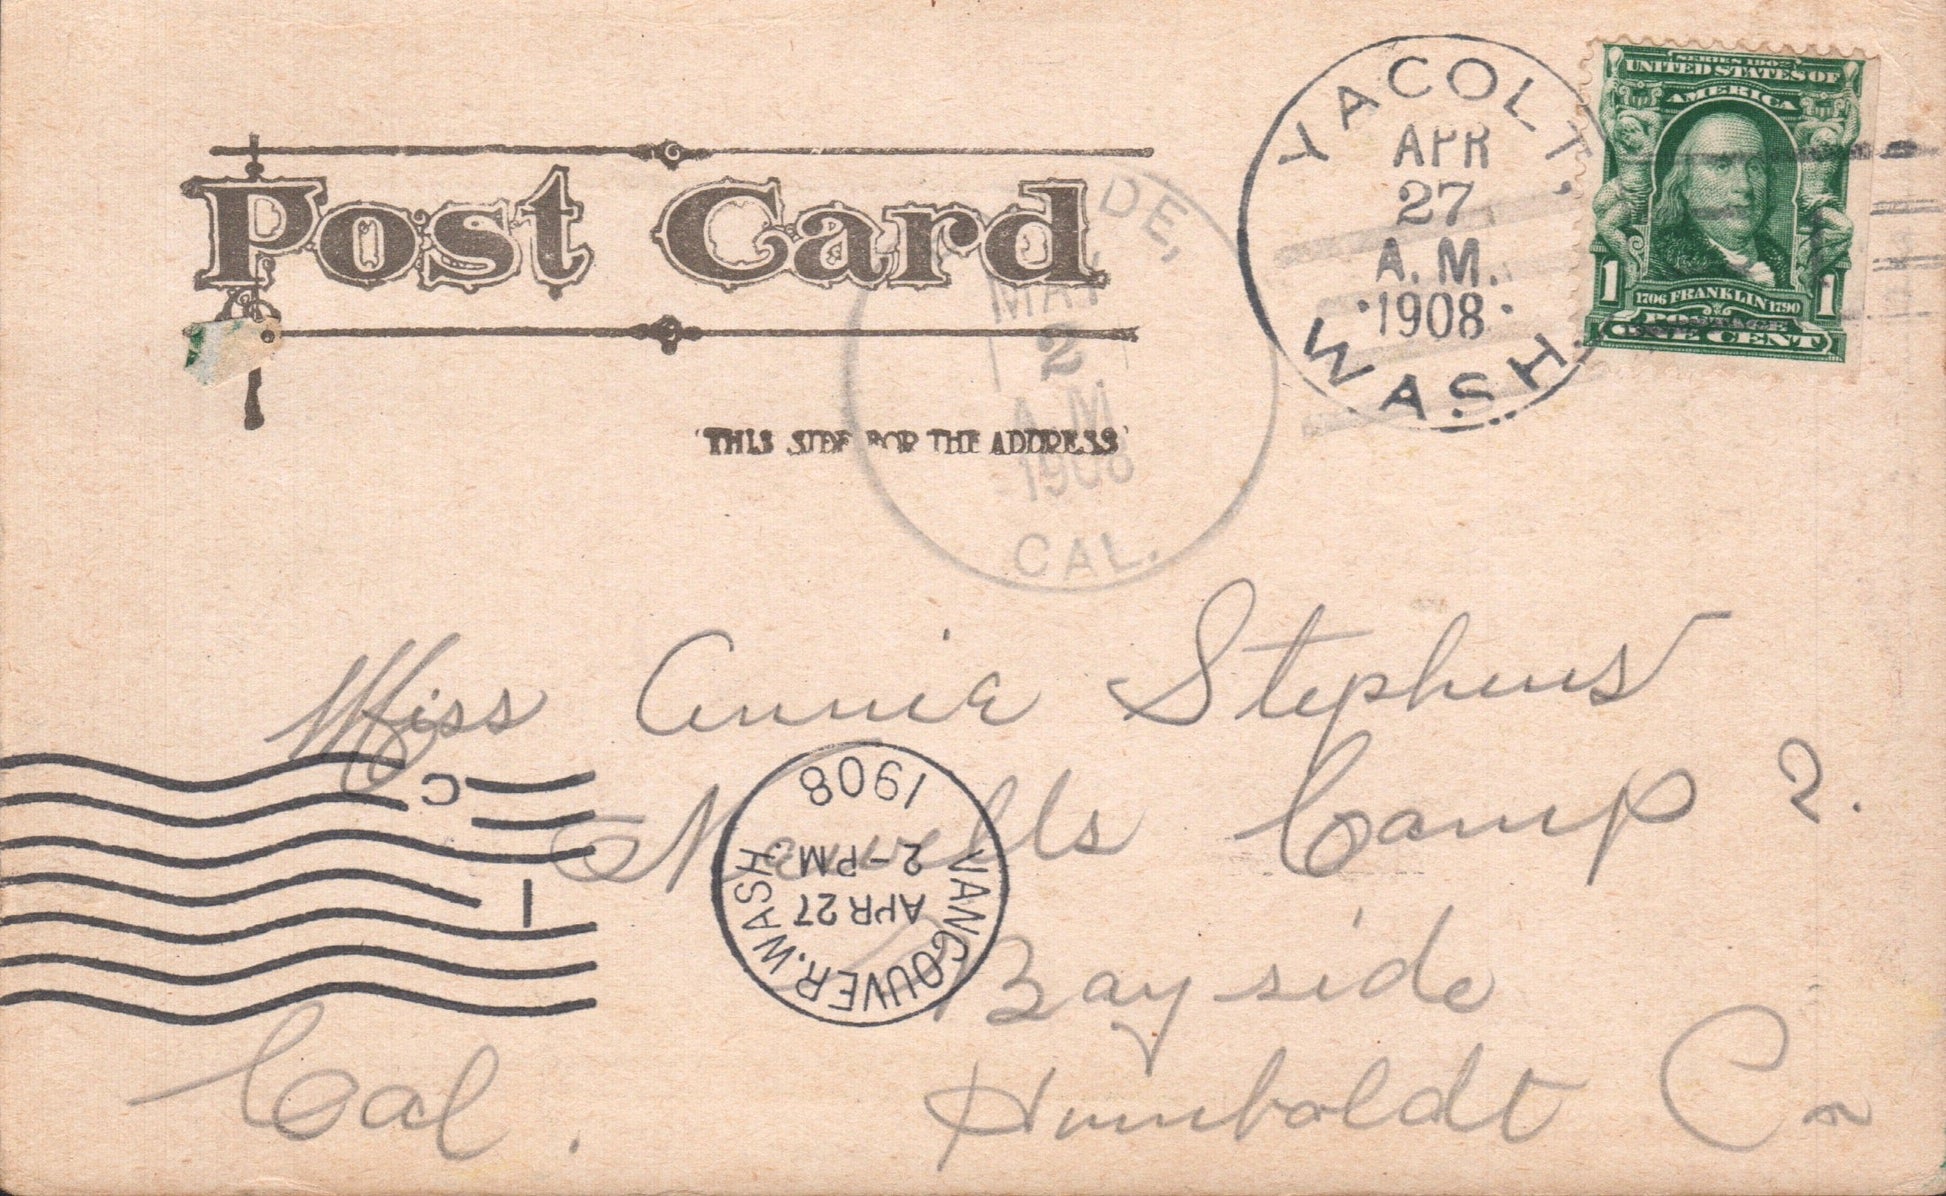 YACOLT,
APR
27
A.M.
1908
WASH.
SERIES 1902
UNITED STATES OF
AMERICA
1 1706 FRANKLIN 1790 1
POSTAGE
ONE CENT
Post Card
DE,
MAY
2
A.M.
1908
CAL.
THIS SIDE FOR THE ADDRESS
Miss Annie Stephens
Camp 2.
VANCOUVER, WASH.
APR 27
2-PM
1908
C
1
Bayside
Humboldt Co
Cal.